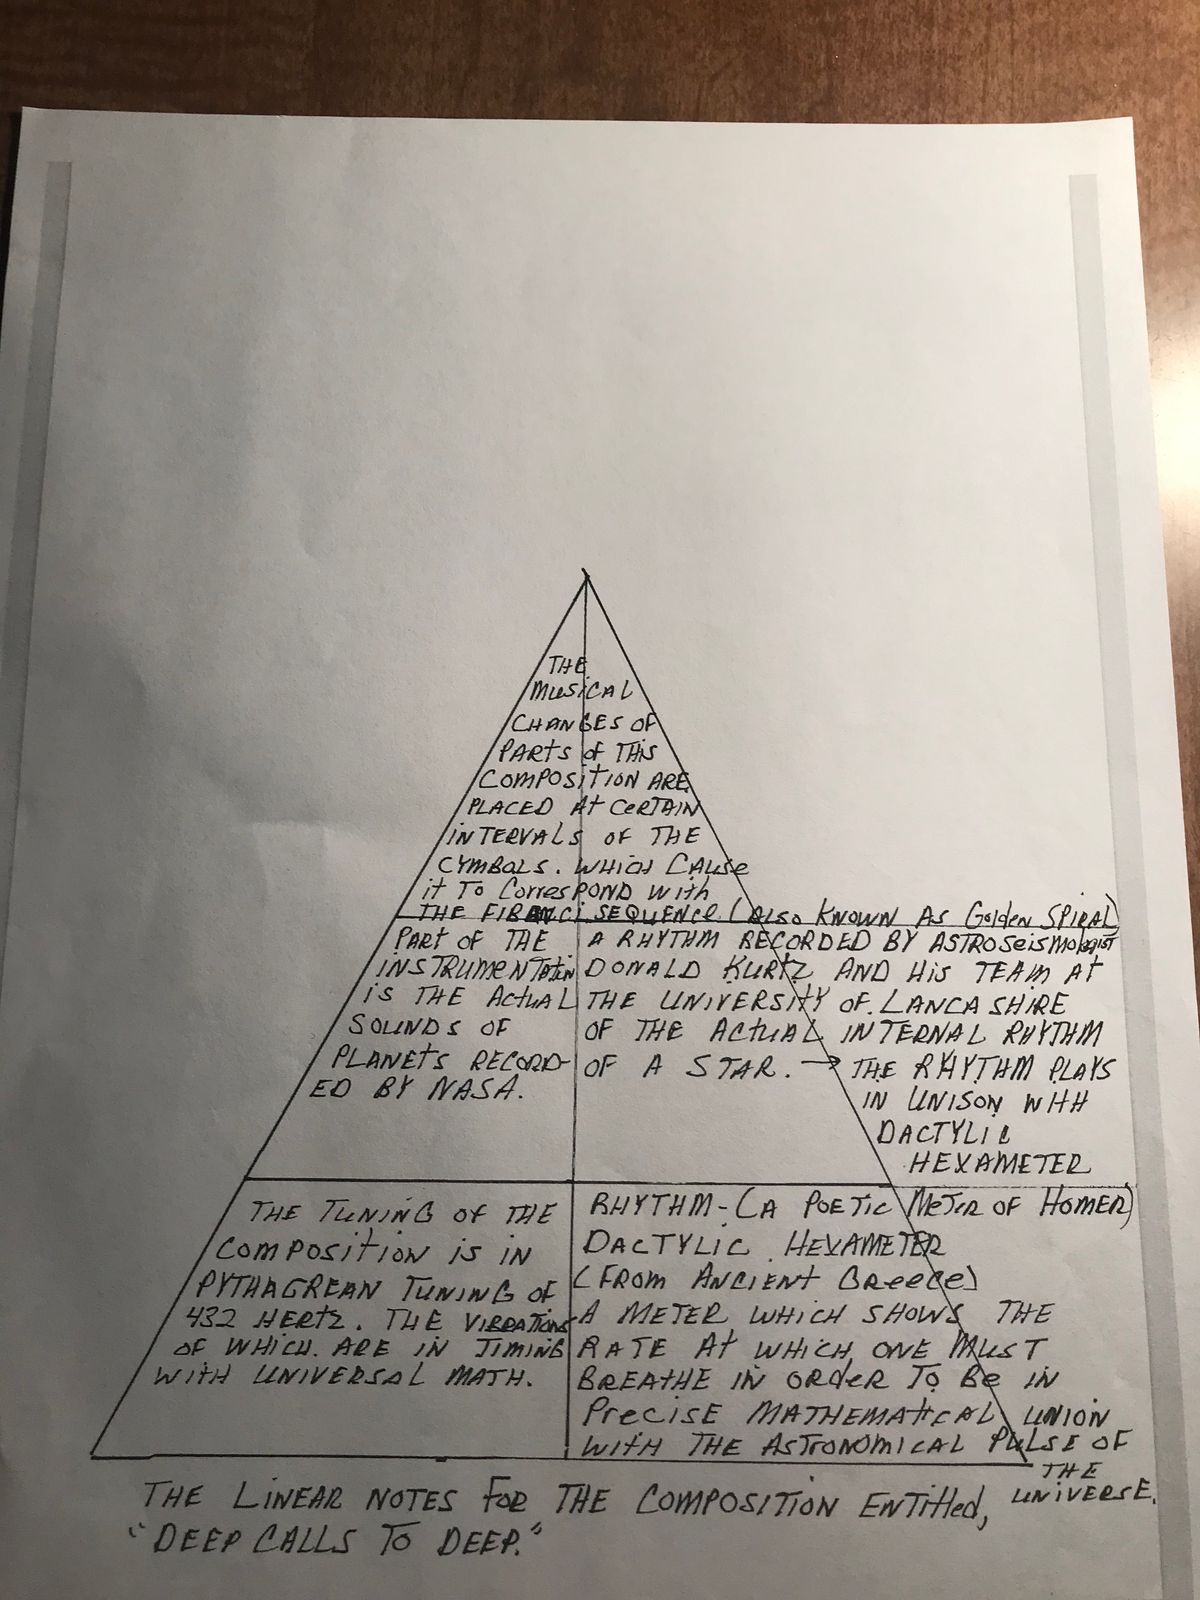 THE
MUSICAL
CHANGES OF
PARTS OF THIS
COMPOSITION ARE
PLACED AT CERTAIN
INTERVALS OF THE
CYMBALS. WHICH CAUSE
it TO CORRESPOND WITH
THE FIBENCI SEQUENCE (ALSO KNOWN AS GOLDEN SPIRAL)
PART OF THE
INSTRUMENTATION
IS THE ACTUAL
SOUNDS OF
PLANETS RECORD-
ED BY NASA.
A RHYTHM RECORDED BY ASTROSEISMOLOGIST
DONALD KURTZ AND HIS TEAM AT
THE UNIVERSITY OF LANCASHIRE
OF THE ACTUAL INTERNAL RHYTHM
OF A STAR. → THE RHYTHM PLAYS
IN UNISON WITH
DACTYLIC
HEXAMETER
THE TUNING OF THE
COMPOSITION IS IN
PYTHAGREAN TUNING OF
432 HERTZ. THE VIBRATIONS
OF WHICH ARE IN TIMING
WITH UNIVERSAL MATH.
RHYTHM-(A POETIC METER OF HOMER)
DACTYLIC HEXAMETER
(FROM ANCIENT GREECE)
A METER WHICH SHOWS THE
RATE AT WHICH ONE MUST
BREATHE IN ORDER TO BE IN
PRECISE MATHEMATICAL UNION
WITH THE ASTRONOMICAL PULSE OF
THE
UNIVERSE.
THE LINEAR NOTES FOR THE COMPOSITION ENTITLED,
"DEEP CALLS TO DEEP."